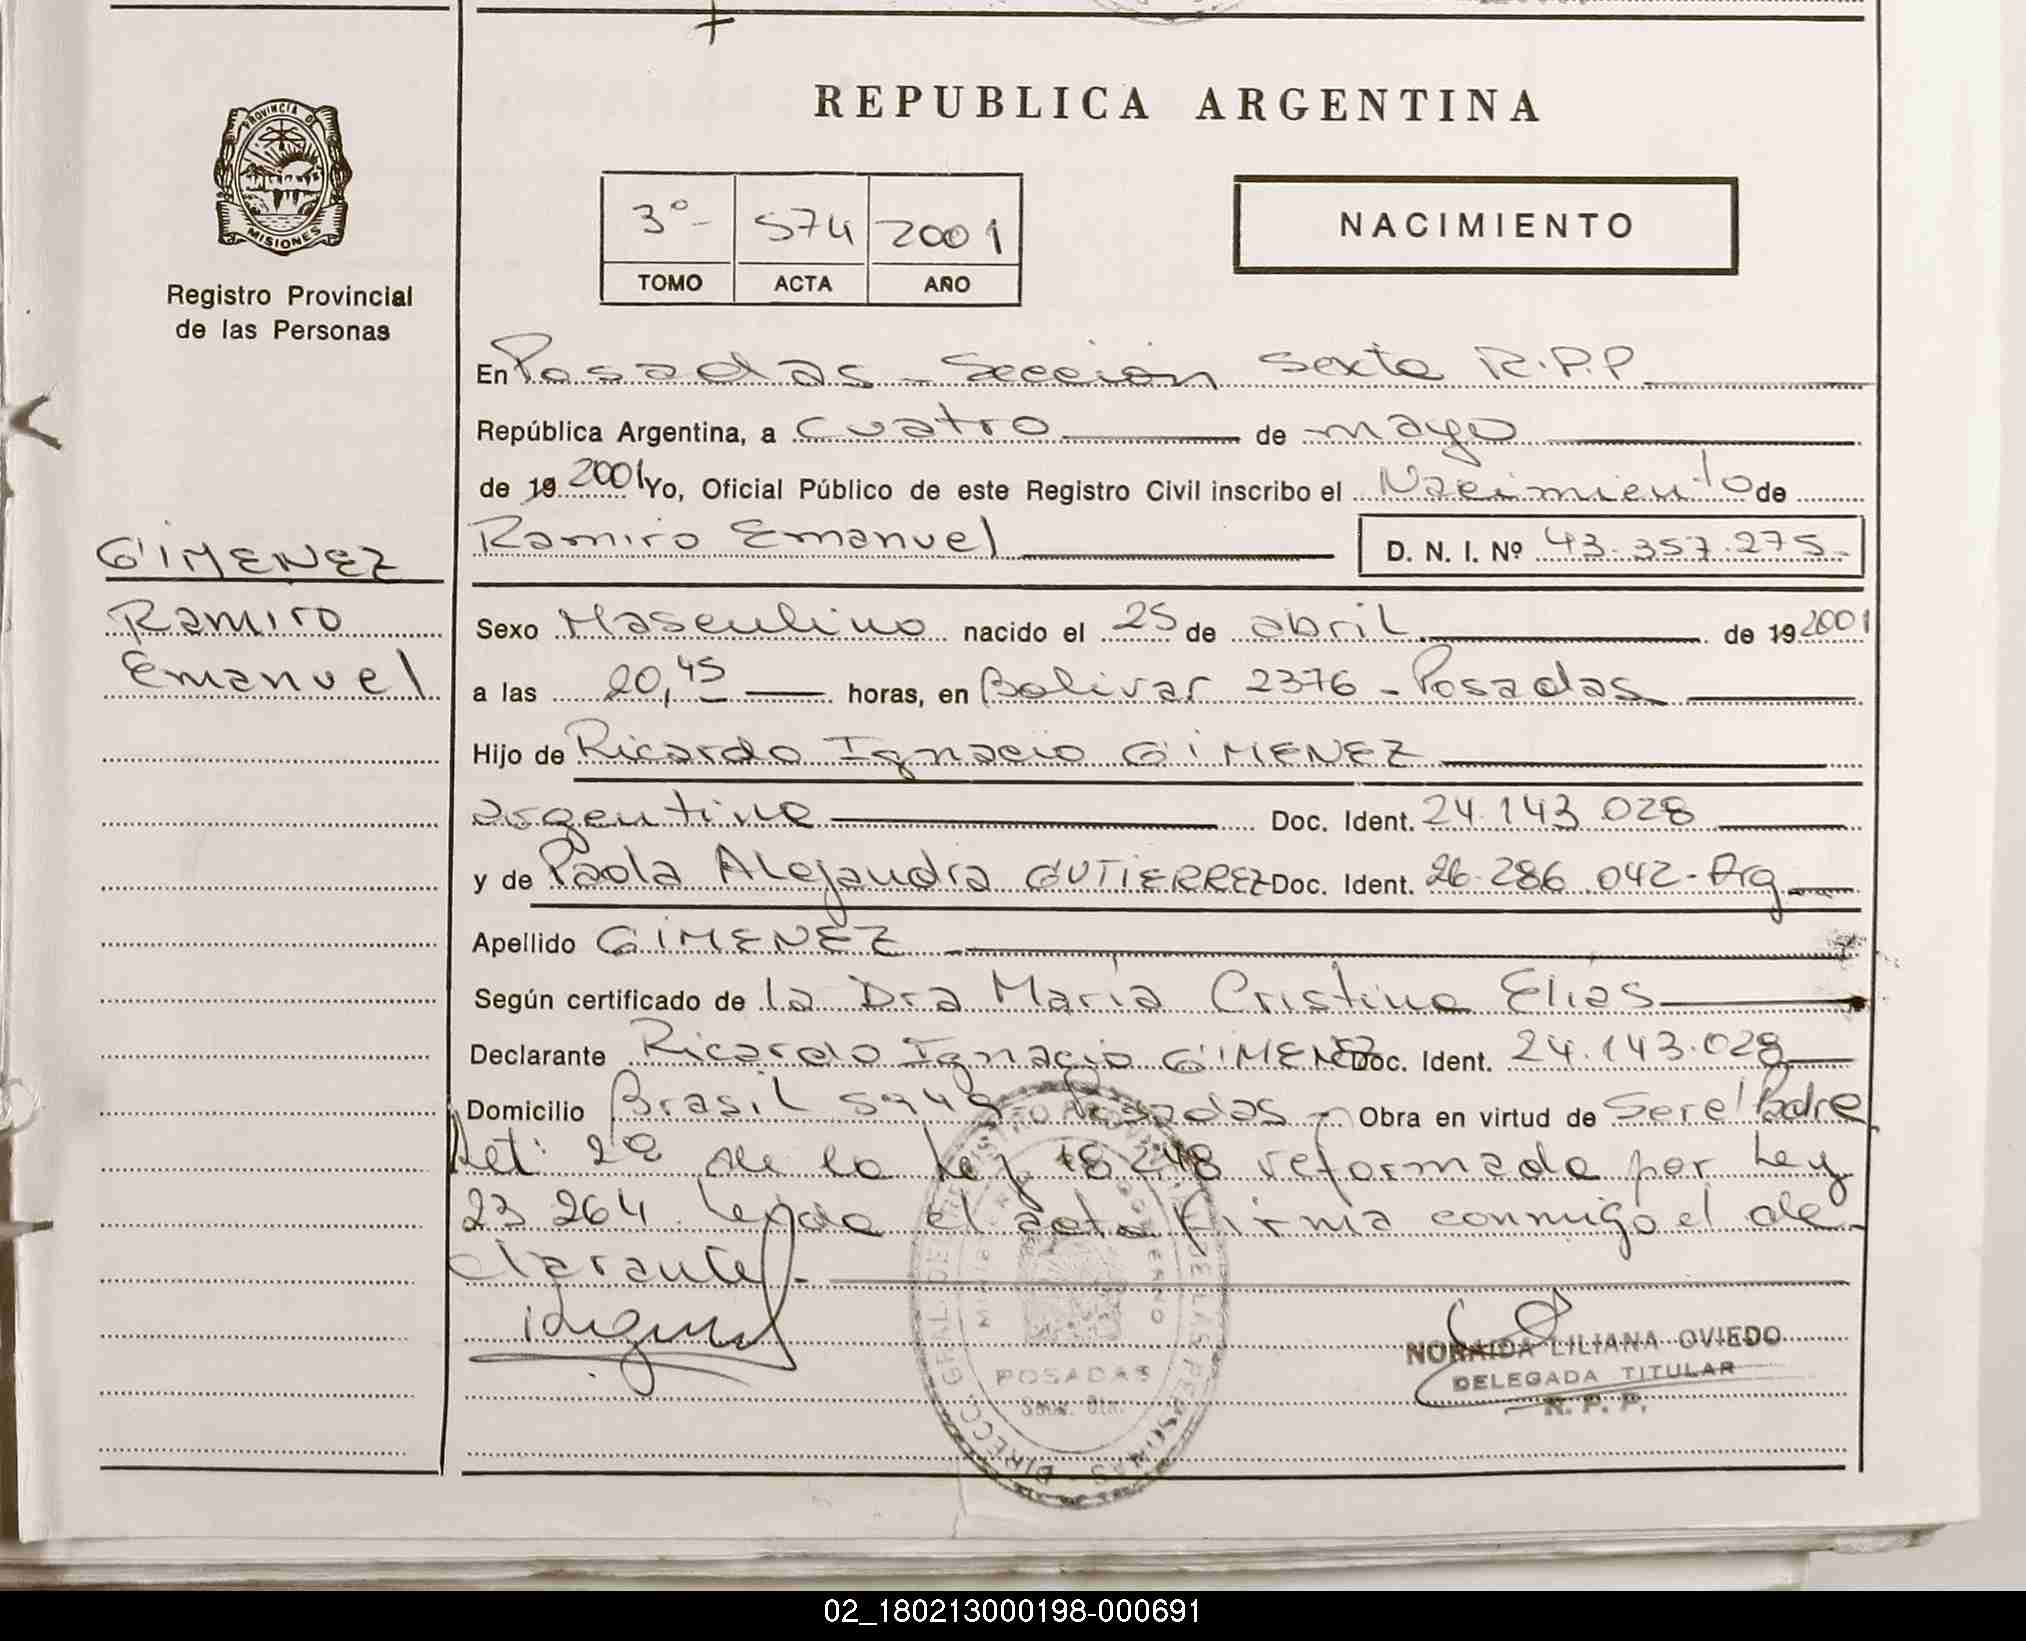 REPUBLICA ARGENTINA
PROVINCIA DE
MISIONES
Registro Provincial
de las Personas
3º- 574 2001
TOMO ACTA AÑO
NACIMIENTO
En Posadas - Sección Sexta R.P.P
República Argentina, a cuatro de mayo
de 19 2001 Yo, Oficial Público de este Registro Civil inscribo el Nacimiento de
Ramiro Emanuel D. N. I. Nº 43.357.275-
GIMENEZ
Ramiro
Emanuel
Sexo Masculino nacido el 25 de abril de 19 2001
a las 20,45 horas, en Bolivar 2376 - Posadas
Hijo de Ricardo Ignacio GIMENEZ
argentino Doc. Ident. 24.143.028
y de Paola Alejandra GUTIERREZ Doc. Ident. 26.286.042- Arg
Apellido GIMENEZ
Según certificado de la Dra María Cristina Elias
Declarante Ricardo Ignacio GIMENEZ Doc. Ident. 24.143.028
Domicilio Brasil Posadas - Obra en virtud de Ser el Padre
Art: 2º de la Ley 18248 reformada por Ley
23264. Leída el acta firma conmigo el de-
clarante.-
NORAIDA LILIANA OVIEDO
DELEGADA TITULAR
R. P. P.
POSADAS
02_180213000198-000691